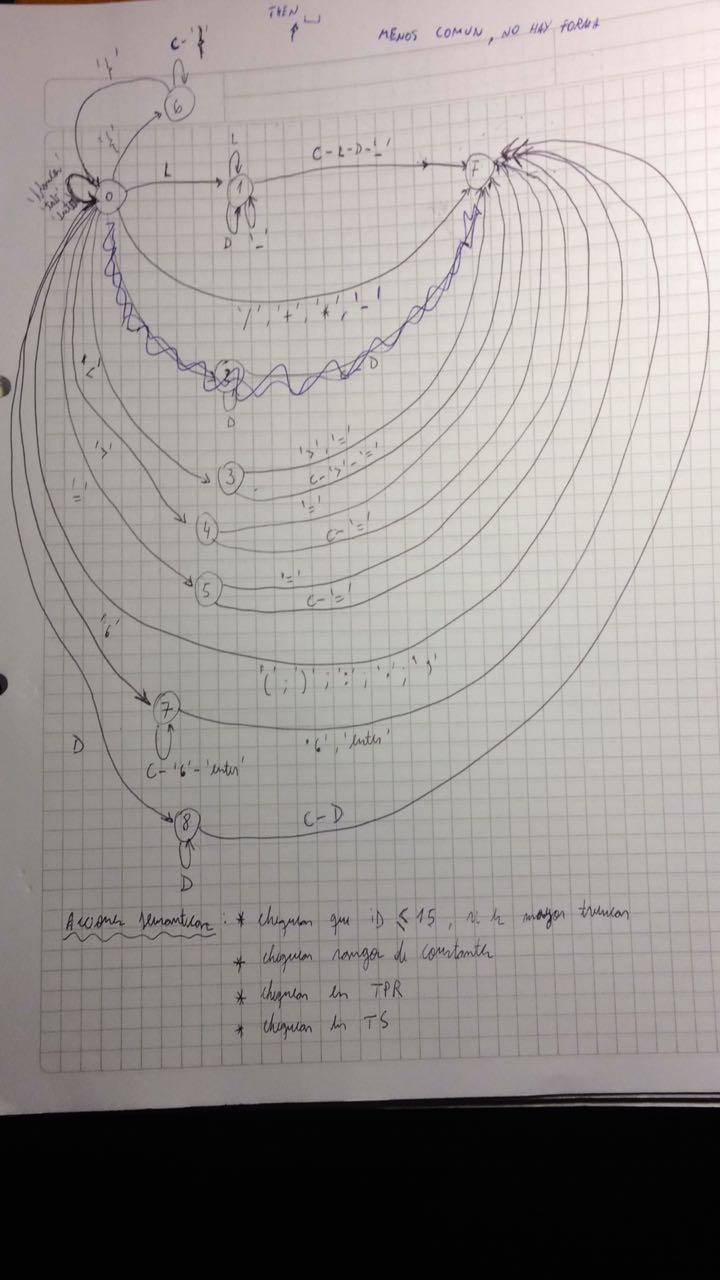 THEN
MENOS COMUN, NO HAY FORMA
C-'}'
'}'
6
'{'
L
C-L-D-'_'
'tab'
0
L
1
F
D
'_'
'/','+','*','-'
2
D
D
'<'
'>','='
3
C-'>'-'='
'>'
'='
4
C-'='
'='
'='
5
C-'='
'(';')';':';
7
'enter'
C-'6'-'enter'
D
8
C-D
D
Acciones semanticas: * chequear que ID ≤ 15, si es mayor truncar
* chequear rangos de constantes
* chequear en TPR
* chequear en TS